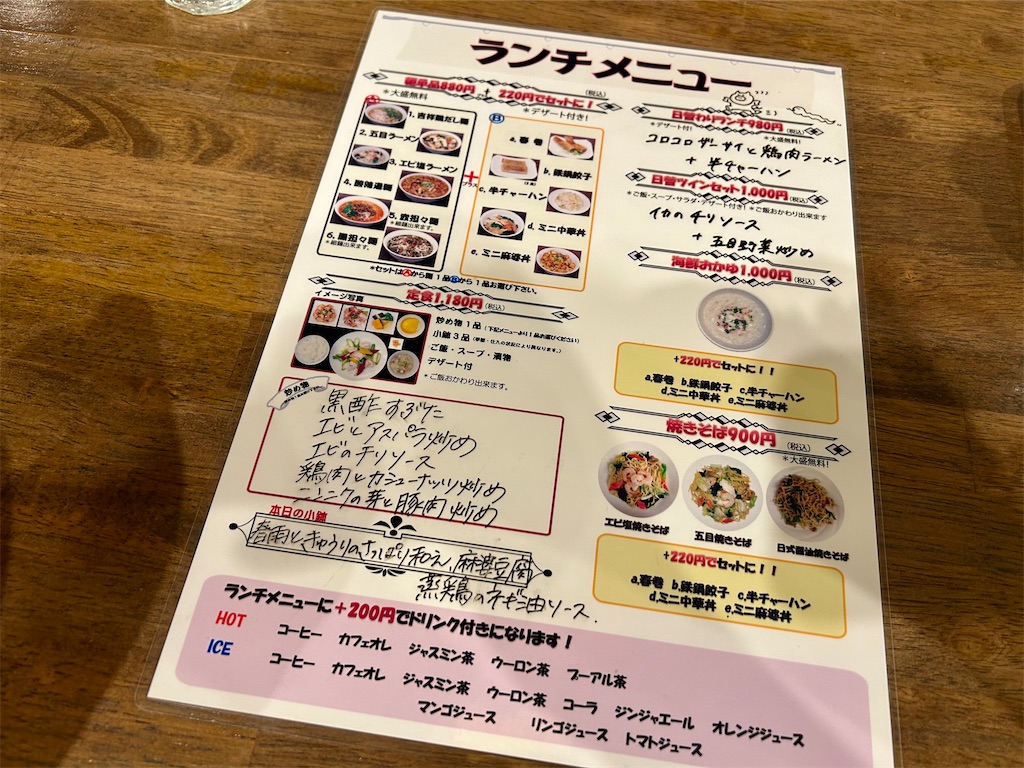 ランチメニュー
麺単品880円 + 220円でセットに！
(税込)
＊大盛無料
＊デザート付き!
A
1. 吉祥鶏だし麺
2. 五目ラーメン
3. エビ塩ラーメン
4. 酸辣湯麺
5. 坦々麺
＊細麺出来ます。
6. 黒担々麺
＊細麺出来ます。
+
プラス
B
a. 春巻
b. 鉄鍋餃子
c. 半チャーハン
d. ミニ中華丼
e. ミニ麻婆丼
＊セットはAから麺１品Bから１品お選び下さい。
定食1,180円(税込)
イメージ写真
炒め物１品（下記メニューより１品お選びください）
小鉢３品
ご飯・スープ・漬物
デザート付
＊ご飯おかわり出来ます。
炒め物
黒酢すぶた
エビとアスパラ炒め
エビのチリソース
鶏肉とカシューナッツ炒め
ニンニクの芽と豚肉炒め
本日の小鉢
春雨ときゅうりのさっぱり和え、麻婆豆腐
蒸鶏のネギ油ソース.
日替わりランチ980円(税込)
＊デザート付!
＊大盛無料!
コロコロザーサイと鶏肉ラーメン
+ 半チャーハン
日替ツインセット1,000円(税込)
＊ご飯・スープ・サラダ・デザート付き! ＊ご飯おかわり出来ます
イカのチリソース
+ 五目野菜炒め
海鮮おかゆ1,000円(税込)
+220円でセットに！！
a,春巻 b,鉄鍋餃子 c,半チャーハン
d,ミニ中華丼 e,ミニ麻婆丼
焼きそば900円
(税込)
＊大盛無料!
エビ塩焼きそば
五目焼きそば
日式醤油焼きそば
+220円でセットに！！
a,春巻 b,鉄鍋餃子 c,半チャーハン
d,ミニ中華丼 e,ミニ麻婆丼
ランチメニューに＋200円でドリンク付きになります！
HOT コーヒー カフェオレ ジャスミン茶 ウーロン茶 プーアル茶
ICE コーヒー カフェオレ ジャスミン茶 ウーロン茶 コーラ ジンジャエール オレンジジュース
マンゴジュース リンゴジュース トマトジュース